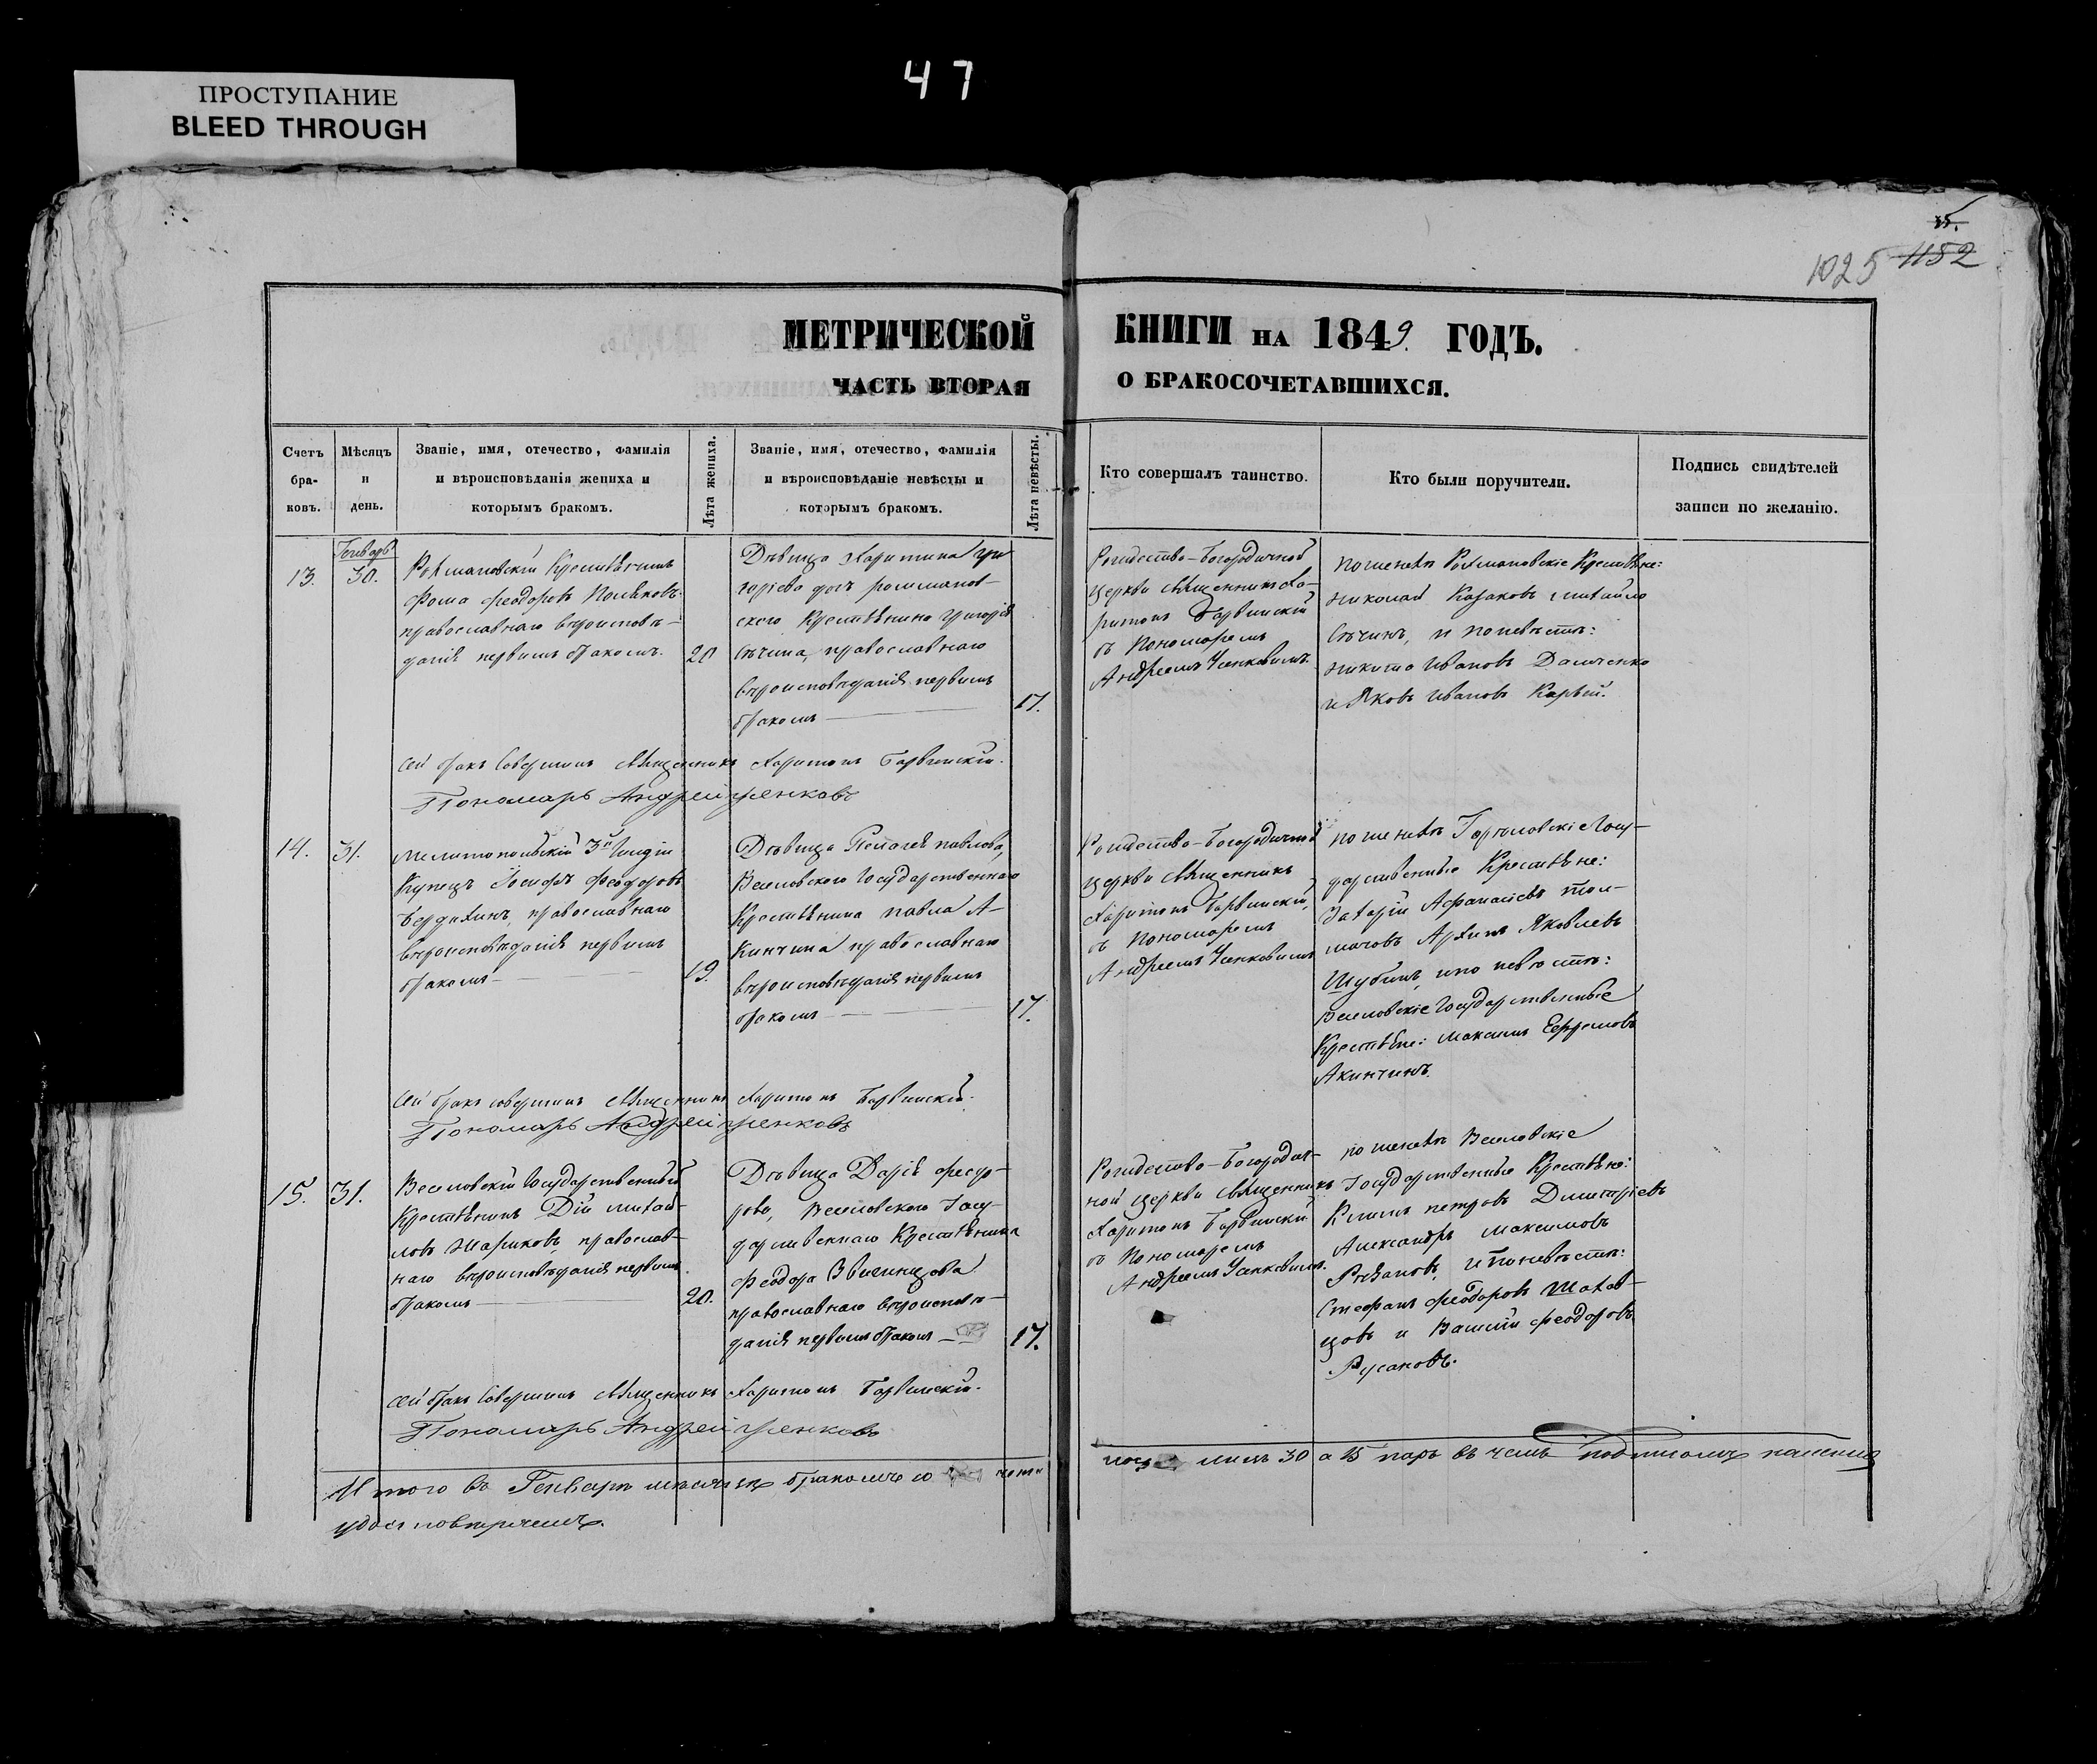 47
ПРОСТУПАНИЕ
BLEED THROUGH
1025 1152
МЕТРИЧЕСКОЙ КНИГИ НА 1849. ГОДЪ.
ЧАСТЬ ВТОРАЯ О БРАКОСОЧЕТАВШИХСЯ.
Счетъ
бра-
ковъ.
Мѣсяцъ
и
день.
Званіе, имя, отечество, фамилія
и вѣроисповѣданія жениха и
которымъ бракомъ.
Лѣта жениха.
Званіе, имя, отечество, фамилія
и вѣроисповѣданіе невѣсты и
которымъ бракомъ.
Лѣта невѣсты.
Кто совершалъ таинство.
Кто были поручители.
Подпись свидѣтелей
записи по желанію.
13.
Генварь
30.
Рохмановскій Крестьянинъ
Фома Феодоровъ Поляковъ
православнаго вѣроисповѣ-
данія первымъ бракомъ.
20
Дѣвица Харитина Гри
горіева дочь рохманов-
скаго Крестьянина Григорія
Сѣчина, православнаго
вѣроисповѣданія первымъ
бракомъ
17.
Рождество-Богородичной
церкви Священникъ Ха-
ритонъ Барвинскій
съ Пономаремъ
Андреемъ Усенковымъ.
по женихѣ Рохмановскіе Крестьяне:
Николай Казаковъ, Михайло
Сѣчинъ, и по невѣстѣ:
Никита Ивановъ Данченко
и Яковъ Ивановъ Карѣй.
Сей бракъ Совершилъ Священникъ Харитонъ Барвинскій.
Пономарь Андрей Усенковъ
14.
31.
Мелитопольскій 3й Гильдіи
Купецъ Іосифъ Феодоровъ
Бердихинъ, православнаго
вѣроисповѣданія первымъ
бракомъ
19.
Дѣвица Пелагея Павлова,
Веселовскаго Государственнаго
Крестьянина Павла А-
кинчина православнаго
вѣроисповѣданія первымъ
бракомъ
17.
Рождество-Богородичной
церкви Священникъ
Харитонъ Барвинскій,
съ Пономаремъ
Андреемъ Усенковымъ
по женихѣ Горѣловскіе Госу-
дарственные Крестьяне:
Захарій Афанасіевъ Тол-
мачовъ Архипъ Яковлевъ
Шубинъ, и по невѣстѣ:
Веселовскіе Государственные
Крестьяне: Максимъ Ефремовъ
Акинчинъ.
Сей бракъ совершилъ Священникъ Харитонъ Барвинскій.
Пономарь Андрей Усенковъ
15.
31.
Веселовскій Государственный
Крестьянинъ Дій Михай-
ловъ Шариковъ, православ-
наго вѣроисповѣданія первымъ
бракомъ
20.
Дѣвица Дарія Феодо-
рова, Веселовскаго Госу-
дарственнаго Крестьянина
Феодора Звягинцова
православнаго вѣроисповѣ-
данія первымъ бракомъ
17.
Рождество-Богородич-
ной церкви Священникъ
Харитонъ Барвинскій
съ Пономаремъ
Андреемъ Усенковымъ.
по женихѣ Веселовскіе
Государственные Крестьяне:
Климъ Петровъ Димитріевъ
Александръ Максимовъ
Рязановъ, и по невѣстѣ:
Стефанъ Феодоровъ Шахов-
цовъ и Василій Феодоровъ
Русановъ.
Сей бракъ Совершилъ Священникъ Харитонъ Барвинскій.
Пономарь Андрей Усенковъ
Итого въ Генварѣ мѣсяцѣ бракомъ со
лицъ 30 а 15 паръ въ чемъ подписомъ нашимъ